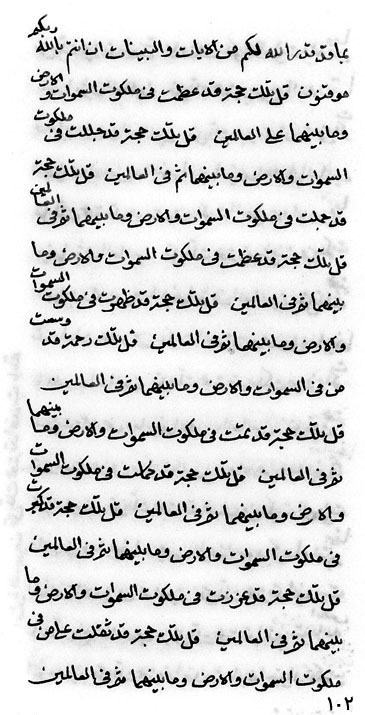 بما قد قدر الله لكم من الايات والبينات ان انتم بالله ربكم
موقنون قل تلك حجة قد عظمت في ملكوت السموات والارض
وما بينهما على العالمين قل تلك حجة قد جللت في ملكوت
السموات والارض وما بينهما ثم في العالمين قل تلك حجة
قد جملت في ملكوت السموات والارض وما بينهما ثم في العالمين
قل تلك حجة قد عظمت في ملكوت السموات والارض وما
بينهما ثم في العالمين قل تلك حجة قد ظهرت في ملكوت السموات
والارض وما بينهما ثم في العالمين قل تلك رحمة قد وسعت
من في السموات والارض وما بينهما ثم في العالمين
قل تلك حجة قد تمت في ملكوت السموات والارض وما بينهما
ثم في العالمين قل تلك حجة قد كملت في ملكوت السموات
والارض وما بينهما ثم في العالمين قل تلك حجة قد كبرت
في ملكوت السموات والارض وما بينهما ثم في العالمين
قل تلك حجة قد عززت في ملكوت السموات والارض وما
بينهما ثم في العالمين قل تلك حجة قد ثقلت على من في
ملكوت السموات والارض وما بينهما ثم في العالمين
١٠٢